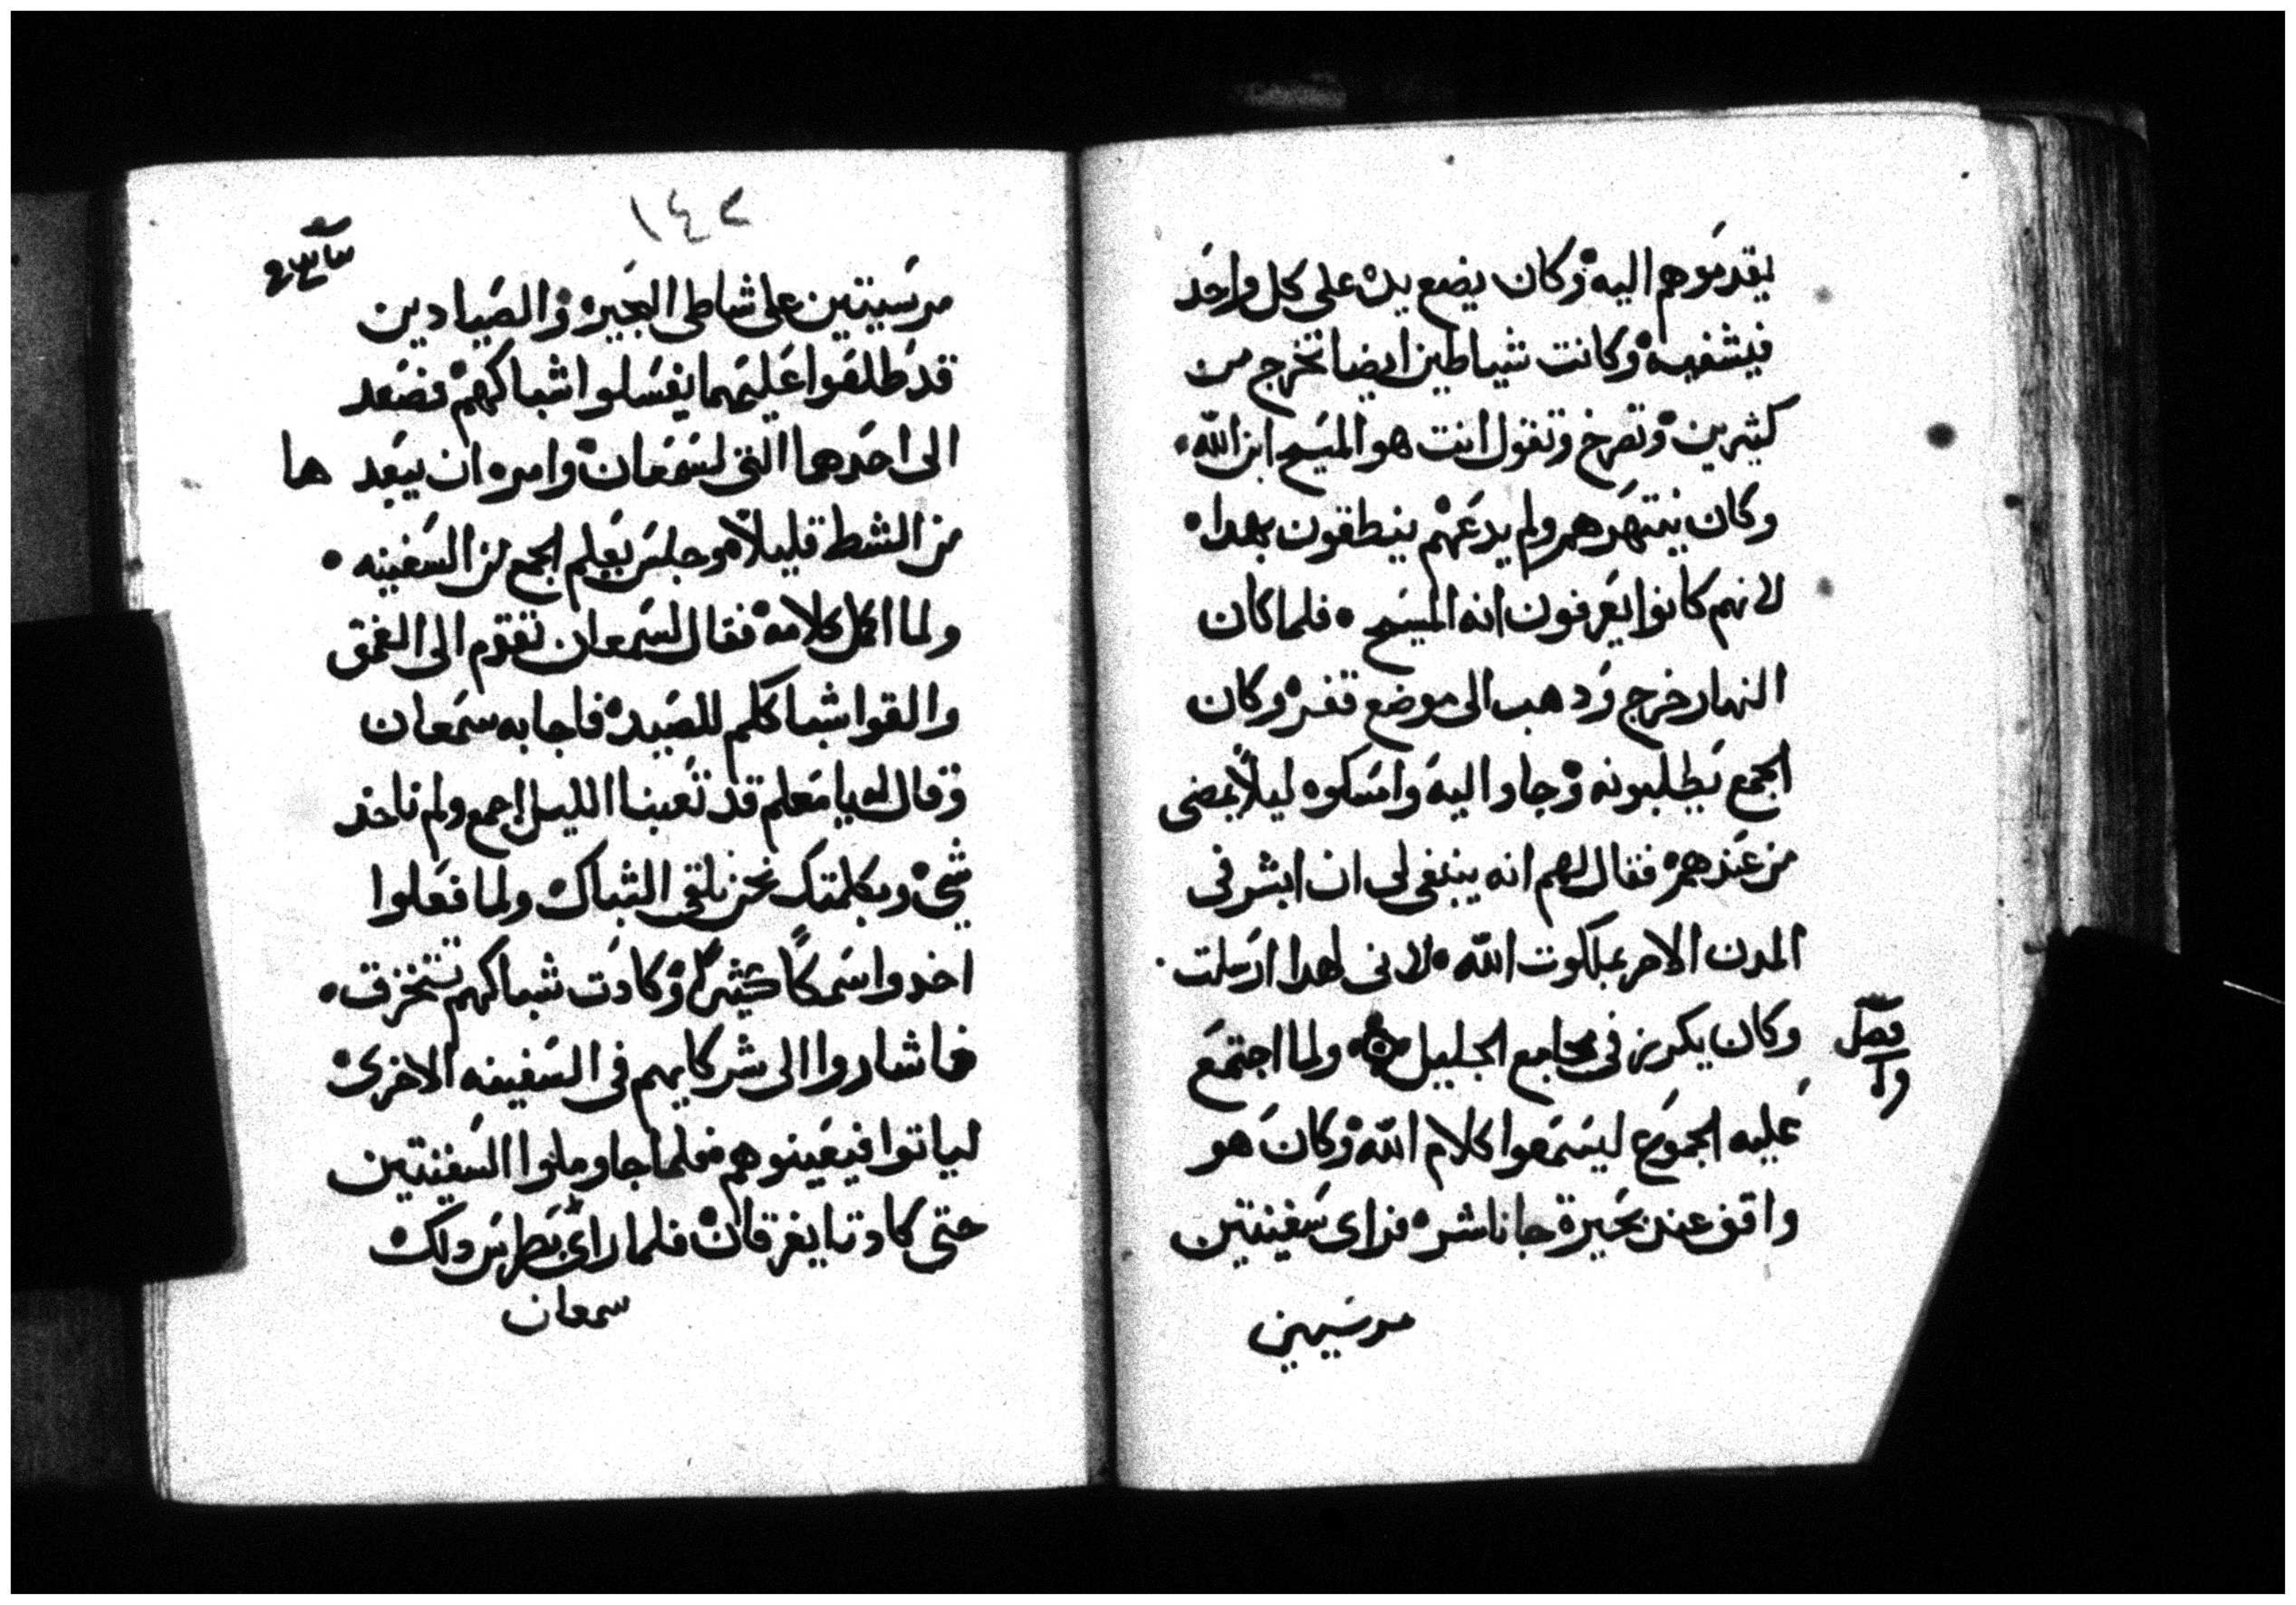 يقدموهم اليه وكان يضع يده على كل واحد
فيشفيه وكانت شياطين ايضا تخرج من
كثيرين وتصرخ وتقول انت هو المسيح ابن الله
وكان ينتهرهم ولم يدعهم ينطقون بهدا
لانهم كانوا يعرفون انه المسيح فلما كان
النهار خرج ودهب الى موضع قفر وكان
الجمع يطلبونه وجاوا اليه وامسكوه ليلا يمضى
من عندهم فقال لهم انه ينبغى لى ان ابشر فى
المدن الاخر بملكوت الله لانى لهدا ارسلت
وكان يكرز فى مجامع الجليل ولما اجتمع
فصل
عليه الجموع ليسمعوا كلام الله وكان هو
واقف عند بحيرة جاناشر فراى سفينتين
مرسيتين
١٤٢
مرسيتين على شاطى البحيره والصيادين
قد طلعوا عليهما يغسلوا اشباكهم فصعد
الى احدهما التى لسمعان وامره ان يبعد ها
من الشط قليلا وجلس يعلم الجمع من السفينه
ولما اكمل كلامه فقال لسمعان تقدم الى الغمق
والقوا شباككم للصيد فاجابه سمعان
وقال له يا معلم قد تعبنا الليل اجمع ولم ناخد
شى وبكلمتك نحن نلقى الشباك ولما فعلوا
اخدوا سمكا كثيرا وكادت شباكهم تتخرق
فاشاروا الى شركايهم فى السفينه الاخرى
لياتوا فيعينوهم فلما جاو ملوا السفينتين
حتى كادتا يغرقان فلما راى بطرس دلك
سمعان